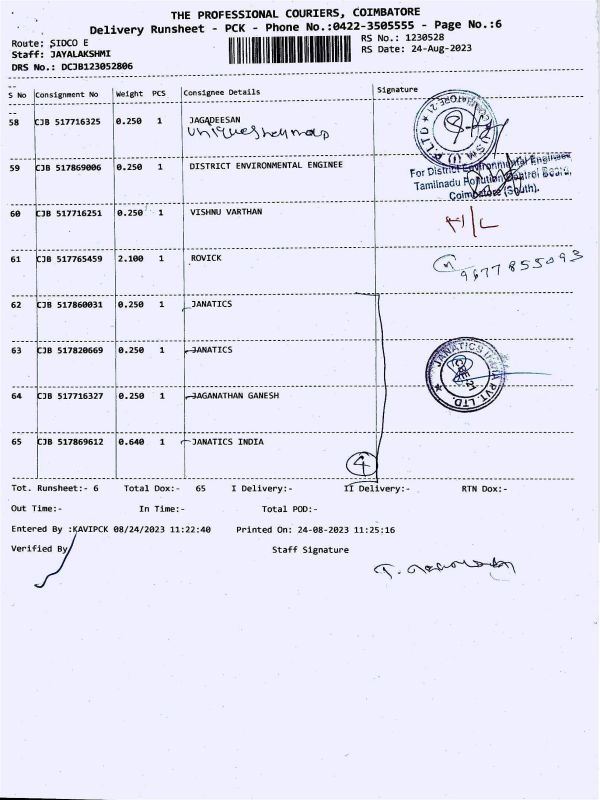 THE PROFESSIONAL COURIERS, COIMBATORE
Delivery Runsheet - PCK - Phone No.:0422-3505555 - Page No.:6
Route: SIDCO E
RS No.: 1230528
Staff: JAYALAKSHMI
RS Date: 24-Aug-2023
DRS No.: DCJB123052806
S No Consignment No Weight PCS Consignee Details Signature
58 CJB 517716325 0.250 1 JAGADEESAN
59 CJB 517869006 0.250 1 DISTRICT ENVIRONMENTAL ENGINEE
For District Environmental Engineer
Tamilnadu Pollution Control Board,
Coimbatore (South).
60 CJB 517716251 0.250 1 VISHNU VARTHAN
61 CJB 517765459 2.100 1 ROVICK
9677855093
62 CJB 517860031 0.250 1 JANATICS
63 CJB 517820669 0.250 1 JANATICS
JANATICS INDIA PVT. LTD.
64 CJB 517716327 0.250 1 JAGANATHAN GANESH
65 CJB 517869612 0.640 1 JANATICS INDIA
4
Tot. Runsheet:- 6 Total Dox:- 65 I Delivery:- II Delivery:- RTN Dox:-
Out Time:- In Time:- Total POD:-
Entered By :KAVIPCK 08/24/2023 11:22:40 Printed On: 24-08-2023 11:25:16
Verified By Staff Signature